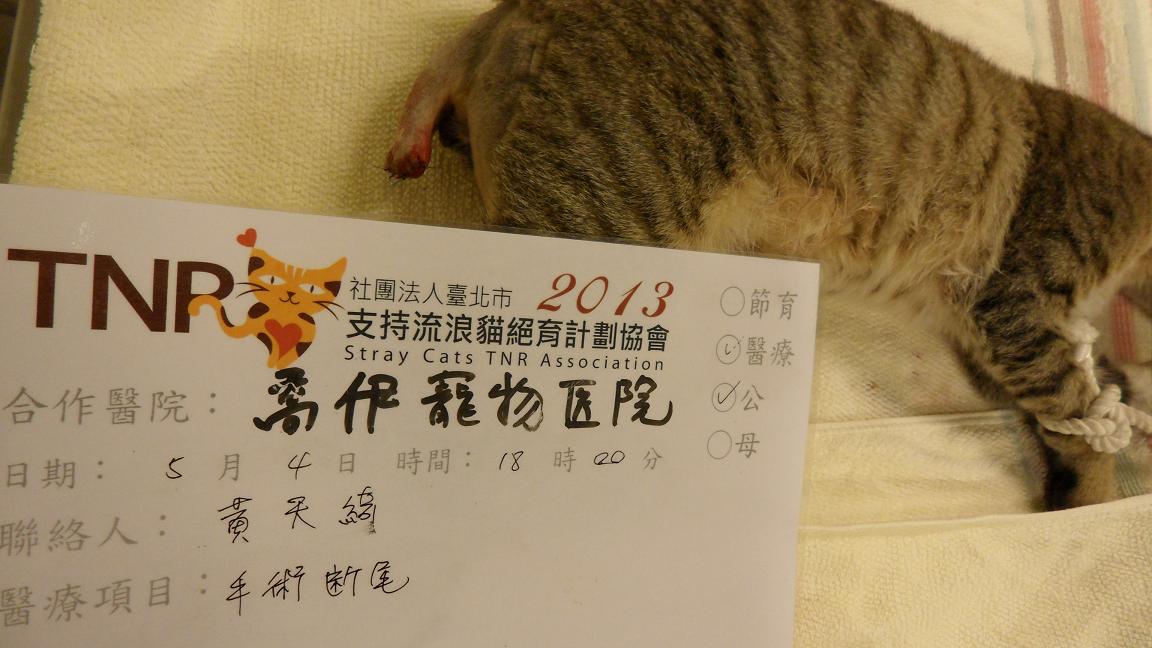 TNR
社團法人臺北市 2013
支持流浪貓絕育計劃協會
Stray Cats TNR Association
○節育
醫療
公
○母
合作醫院：喬伊寵物医院
日期：5月4日 時間：18時00分
聯絡人：黃天綺
醫療項目：手術断尾